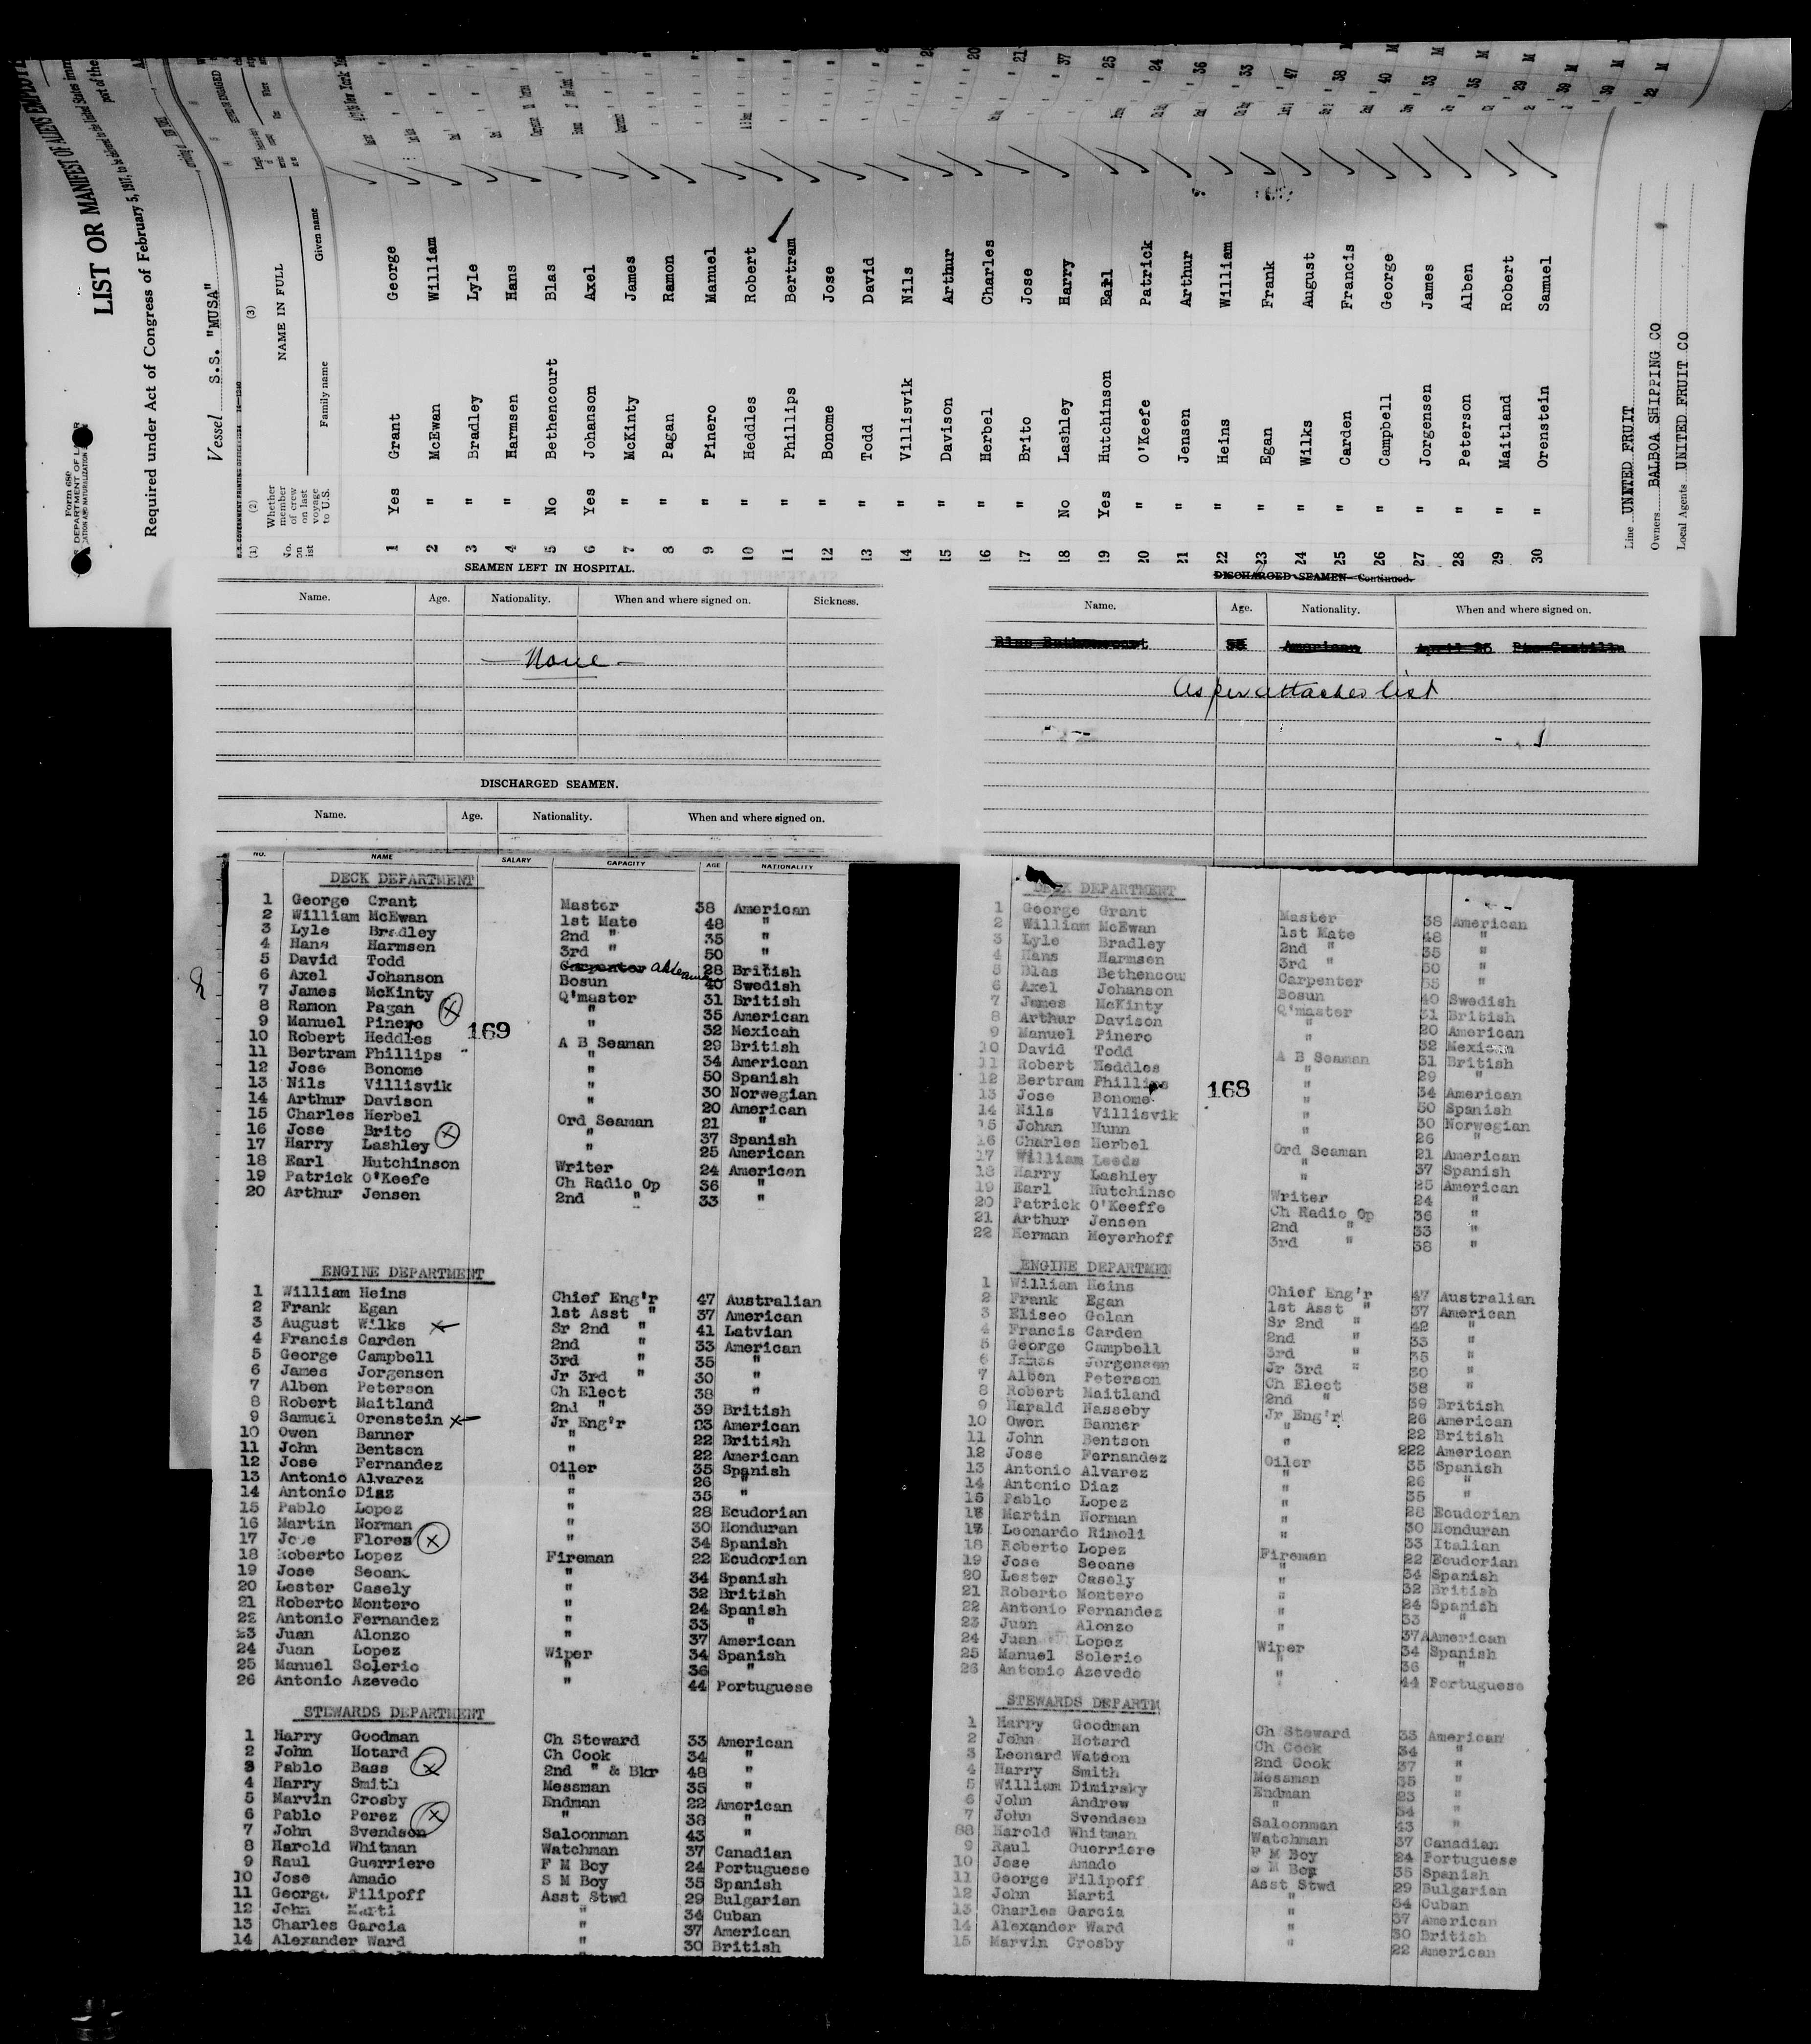 Form 680
LIST OR MANIFEST OF ALIENS EMPLOYED
Required under Act of Congress of February 5, 1917, to be delivered to the United States
port of the
Vessel S.S. "MUSA"
(1) (2) (3)
No. on list Whether member of crew on last voyage to U.S. NAME IN FULL
Family name Given name
1 Yes Grant George
2 " McEwan William
3 " Bradley Lyle
4 " Harmsen Hans
5 No Bethencourt Blas
6 Yes Johanson Axel
7 " McKinty James
8 " Pagan Ramon
9 " Pinero Manuel
10 " Heddles Robert
11 " Phillips Bertram
12 " Bonome Jose
13 " Todd David
14 " Villisvik Nils
15 " Davison Arthur
16 " Herbel Charles
17 " Brito Jose
18 No Lashley Harry
19 Yes Hutchinson Earl
20 " O'Keefe Patrick
21 " Jensen Arthur
22 " Heins William
23 " Egan Frank
24 " Wilks August
25 " Carden Francis
26 " Campbell George
27 " Jorgensen James
28 " Peterson Alben
29 " Maitland Robert
30 " Orenstein Samuel
Line UNITED FRUIT
Owners BALBOA SHIPPING CO
Local Agents UNITED FRUIT CO
SEAMEN LEFT IN HOSPITAL.
Name. Age. Nationality. When and where signed on. Sickness.
None
DISCHARGED SEAMEN.
Name. Age. Nationality. When and where signed on.
DISCHARGED SEAMEN—Continued.
Name. Age. Nationality. When and where signed on.
Blas Bethencourt American April 25
As per attached list
NO. NAME SALARY CAPACITY AGE NATIONALITY
DECK DEPARTMENT
1 George Grant Master 38 American
2 William McEwan 1st Mate 48 "
3 Lyle Bradley 2nd " 35 "
4 Hans Harmsen 3rd " 50 "
5 David Todd Carpenter 28 British
6 Axel Johanson Bosun 40 Swedish
7 James McKinty Q'master 31 British
8 Ramon Pagan " 35 American
9 Manuel Pinero " 32 Mexican
10 Robert Heddles A B Seaman 29 British
11 Bertram Phillips " 34 American
12 Jose Bonome " 50 Spanish
13 Nils Villisvik " 30 Norwegian
14 Arthur Davison " 20 American
15 Charles Herbel Ord Seaman 21 "
16 Jose Brito " 37 Spanish
17 Harry Lashley " 25 American
18 Earl Hutchinson Writer 24 American
19 Patrick O'Keefe Ch Radio Op 36 "
20 Arthur Jensen 2nd " 33 "
169
ENGINE DEPARTMENT
1 William Heins Chief Eng'r 47 Australian
2 Frank Egan 1st Asst " 37 American
3 August Wilks Sr 2nd " 41 Latvian
4 Francis Carden 2nd " 33 American
5 George Campbell 3rd " 35 "
6 James Jorgensen Jr 3rd " 30 "
7 Alben Peterson Ch Elect 38 "
8 Robert Maitland 2nd " 39 British
9 Samuel Orenstein Jr Eng'r 23 American
10 Owen Banner " 22 British
11 John Bentson " 22 American
12 Jose Fernandez Oiler 35 Spanish
13 Antonio Alvarez " 26 "
14 Antonio Diaz " 35 "
15 Pablo Lopez " 28 Ecudorian
16 Martin Norman " 30 Honduran
17 Jose Flores " 34 Spanish
18 Roberto Lopez Fireman 22 Ecudorian
19 Jose Seoane " 34 Spanish
20 Lester Casely " 32 British
21 Roberto Montero " 24 Spanish
22 Antonio Fernandez " 33 "
23 Juan Alonzo " 37 American
24 Juan Lopez Wiper 34 Spanish
25 Manuel Solerio " 36 "
26 Antonio Azevedo " 44 Portuguese
STEWARDS DEPARTMENT
1 Harry Goodman Ch Steward 33 American
2 John Hotard Ch Cook 34 "
3 Pablo Bass 2nd " & Bkr 48 "
4 Harry Smith Messman 35 "
5 Marvin Crosby Endman 22 American
6 Pablo Perez " 38 "
7 John Svendson Saloonman 43 "
8 Harold Whitman Watchman 37 Canadian
9 Raul Guerriero F M Boy 24 Portuguese
10 Jose Amado S M Boy 35 Spanish
11 George Filipoff Asst Stwd 29 Bulgarian
12 John Marti " 34 Cuban
13 Charles Garcia " 37 American
14 Alexander Ward " 30 British
DECK DEPARTMENT
1 George Grant Master 38 American
2 William McEwan 1st Mate 48 "
3 Lyle Bradley 2nd " 35 "
4 Hans Harmsen 3rd " 50 "
5 Blas Bethencou Carpenter 35 "
6 Axel Johanson Bosun 40 Swedish
7 James McKinty Q'master 31 British
8 Arthur Davison " 20 American
9 Manuel Pinero " 32 Mexican
10 David Todd A B Seaman 31 British
11 Robert Heddles " 29 "
12 Bertram Phillips " 34 American
13 Jose Bonome " 50 Spanish
14 Nils Villisvik " 30 Norwegian
15 Johan Nunn " 26 "
16 Charles Herbel Ord Seaman 21 American
17 William Leeds " 37 Spanish
18 Harry Lashley " 25 American
19 Earl Hutchinso Writer 24 "
20 Patrick O'Keeffe Ch Radio Op 36 "
21 Arthur Jensen 2nd " 33 "
22 Herman Meyerhoff 3rd " 38 "
168
ENGINE DEPARTMEN
1 William Heins Chief Eng'r 47 Australian
2 Frank Egan 1st Asst " 37 American
3 Eliseo Golan Sr 2nd " 42 "
4 Francis Carden 2nd " 33 "
5 George Campbell 3rd " 35 "
6 James Jorgensen Jr 3rd " 30 "
7 Alben Peterson Ch Elect 38 "
8 Robert Maitland 2nd " 39 British
9 Harald Nasseby Jr Eng'r 26 American
10 Owen Banner " 22 British
11 John Bentson " 222 American
12 Jose Fernandez Oiler 35 Spanish
13 Antonio Alvarez " 26 "
14 Antonio Diaz " 35 "
15 Pablo Lopez " 28 Ecudorian
16 Martin Norman " 30 Honduran
17 Leonardo Rimoli " 33 Italian
18 Roberto Lopez Fireman 22 Ecudorian
19 Jose Seoane " 34 Spanish
20 Lester Casely " 32 British
21 Roberto Montero " 24 Spanish
22 Antonio Fernandez " 33 "
23 Juan Alonzo " 37AAmerican
24 Juan Lopez Wiper 34 Spanish
25 Manuel Solerio " 36 "
26 Antonio Azevedo " 44 Portuguese
STEWARDS DEPARTM
1 Harry Goodman Ch Steward 33 American
2 John Hotard Ch Cook 34 "
3 Leonard Watson 2nd Cook 37 "
4 Harry Smith Messman 35 "
5 William Dimirsky Endman 23 "
6 John Andrew " 34 "
7 John Svendsen Saloonman 43 "
88 Harold Whitman Watchman 37 Canadian
9 Raul Guerriero F M Boy 24 Portuguese
10 Jose Amado S M Boy 35 Spanish
11 George Filipoff Asst Stwd 29 Bulgarian
12 John Marti " 34 Cuban
13 Charles Garcia " 37 American
14 Alexander Ward " 30 British
15 Marvin Crosby " 22 American